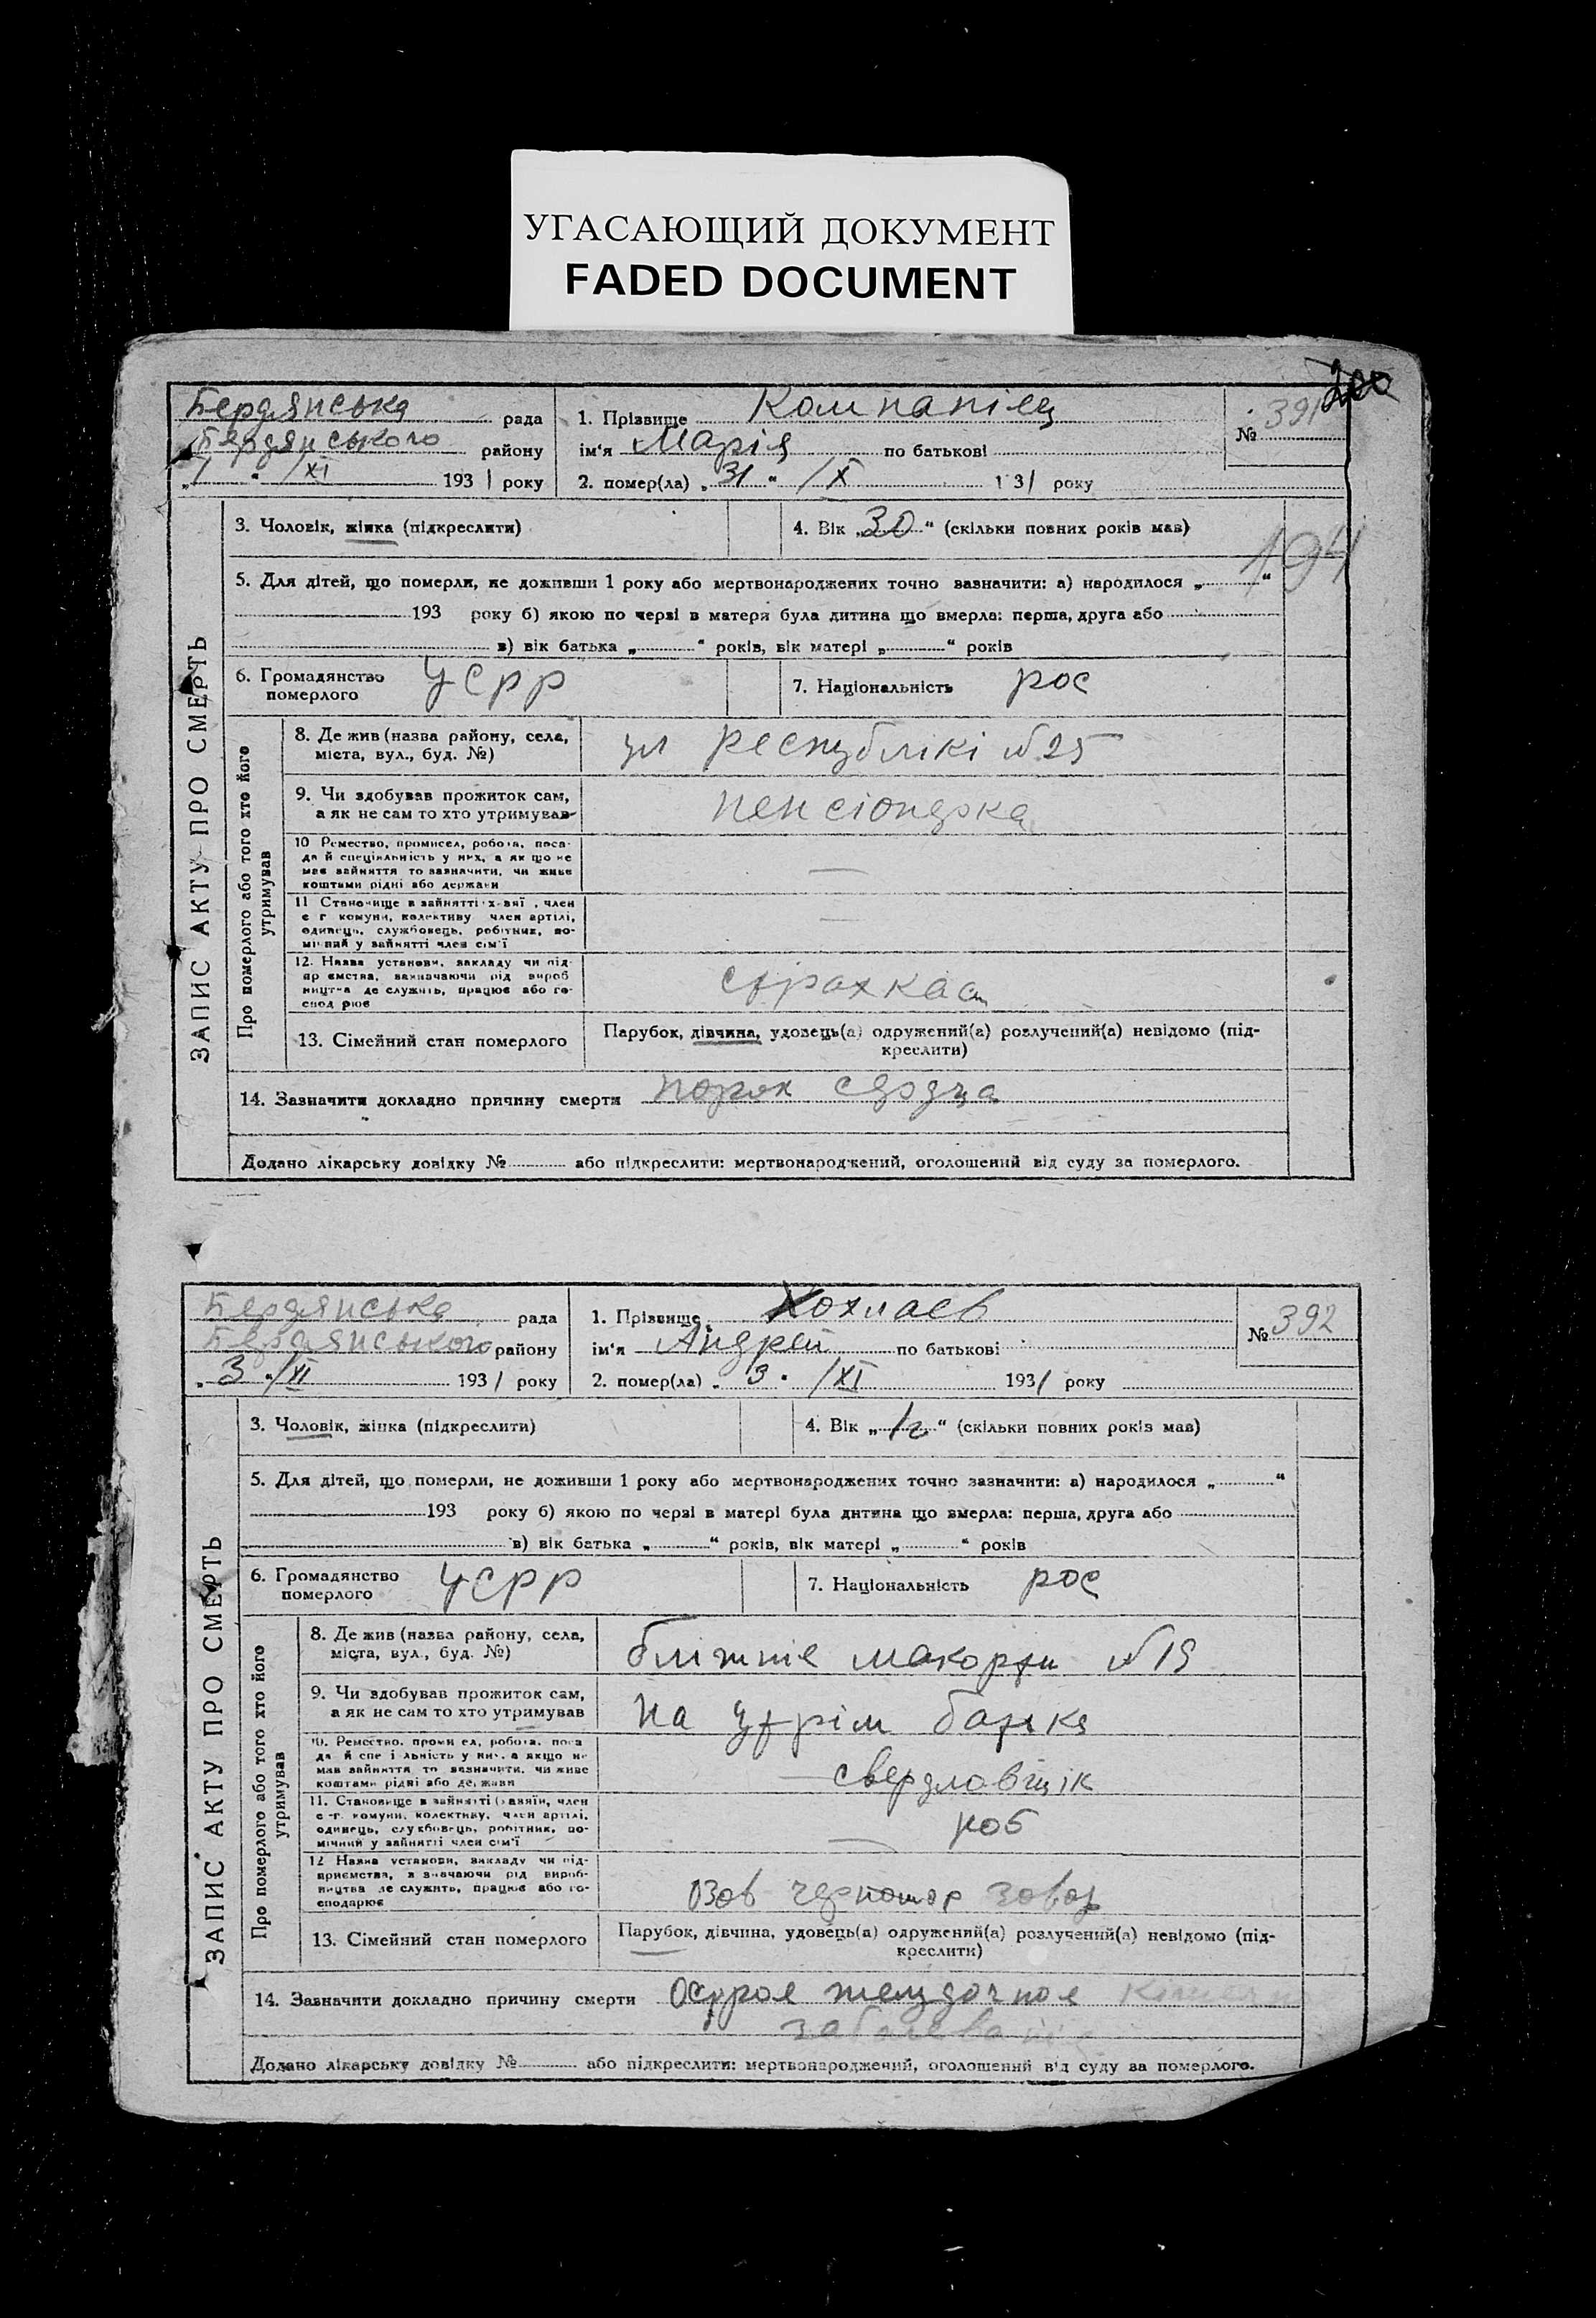 УГАСАЮЩИЙ ДОКУМЕНТ
FADED DOCUMENT
200
Бердянська рада
Бердянського району
„1“ /XI 1931 року
1. Прізвище Компаніец
ім'я Марія по батькові
2. помер(ла) „31“ /X 1 31 року
№ 391
194
ЗАПИС АКТУ ПРО СМЕРТЬ
3. Чоловік, жінка (підкреслити)
4. Вік „30“ (скільки повних років мав)
5. Для дітей, що померли, не доживши 1 року або мертвонароджених точно зазначити: а) народилося „ “
193 року б) якою по черзі в матери була дитина що вмерла: перша, друга або
в) вік батька „ “ років, вік матері „ “ років
6. Громадянство
померлого
УСРР
7. Національність рос
Про померлого або того хто його
утримував
8. Де жив (назва району, села,
міста, вул., буд. №)
ул Республікі №25
9. Чи здобував прожиток сам,
а як не сам то хто утримував
пенсіонерка
10 Ремество, промисел, робота, поса-
да й спеціяльність у них, а як що не
має зайняття то зазначити, чи живе
коштами рідні або держави
—
11 Становище в зайнятті член
с г комуни, колективу член артілі,
одинець, службовець, робітник, по-
мічний у зайнятті член сім'ї
—
12. Назва установи, закладу чи під-
приємства, зазначаючи рід вироб
ництва де служить, працює або го-
спод рює
страхкаса
13. Сімейний стан померлого
Парубок, дівчина, удовець(а) одружений(а) розлучений(а) невідомо (під-
креслити)
14. Зазначити докладно причину смерти порок сердца
Додано лікарську довідку № або підкреслити: мертвонароджений, оголошений від суду за померлого.
Бердянська рада
Бердянського району
„3“ /XI 1931 року
1. Прізвище Хохлаев
ім'я Андрей по батькові
2. помер(ла) „3“ /XI 1931 року
№ 392
ЗАПИС АКТУ ПРО СМЕРТЬ
3. Чоловік, жінка (підкреслити)
4. Вік „1г“ (скільки повних років мав)
5. Для дітей, що померли, не доживши 1 року або мертвонароджених точно зазначити: а) народилося „ “
193 року б) якою по черзі в матері була дитина що вмерла: перша, друга або
в) вік батька „ “ років, вік матері „ “ років
6. Громадянство
померлого
УСРР
7. Національність рос
Про померлого або того хто його
утримував
8. Де жив (назва району, села,
міста, вул., буд. №)
ближніе макорти №19
9. Чи здобував прожиток сам,
а як не сам то хто утримував
на утрім батька
10. Ремество, промисел, робота, поса
да й спеціяльність у них, а якщо не
мав зайняття то зазначити, чи живе
коштами рідні або держави
— свердловщік
11. Становище в зайнятті (хазяїн, член
с-г. комуни, колективу, член артілі,
одинець, службовець, робітник, по-
мічний у зайнятті член сім'ї
— роб
12 Назва установи, закладу чи під-
приємства, зазначаючи рід вироб-
ництва де служить, працює або го-
сподарює
Озов черномор завод
13. Сімейний стан померлого
Парубок, дівчина, удовець(а) одружений(а) розлучений(а) невідомо (під-
креслити)
14. Зазначити докладно причину смерти Острое желудочное
заболевание
Додано лікарську довідку № або підкреслити: мертвонароджений, оголошений від суду за померлого.